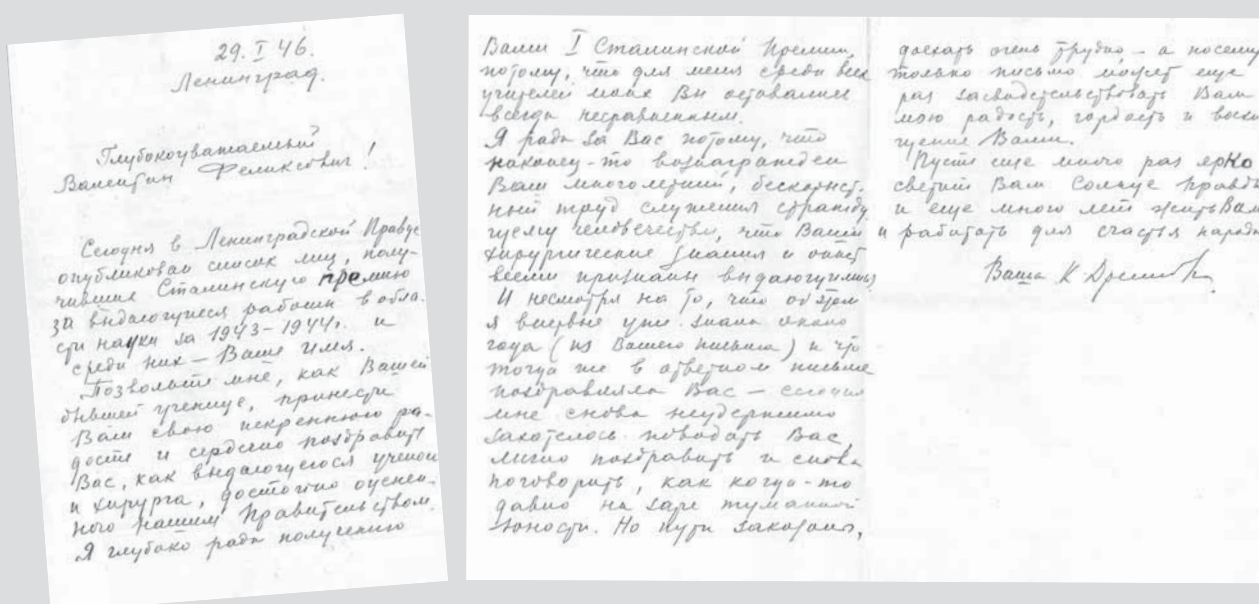 29. I 46.
Ленинград.
Глубокоуважаемый
Валентин Феликсович!
Сегодня в Ленинградской Правде
опубликован список лиц, полу-
чивших Сталинскую премию
за выдающиеся работы в обла-
сти науки за 1943–1944г. и
среди них — Ваше имя.
Позвольте мне, как Вашей
бывшей ученице, принести
Вам свою искреннюю ра-
дость и сердечно поздравить
Вас, как выдающегося ученого
и хирурга, достойно оценен-
ного нашим Правительством.
Я глубоко рада получению
Вами I Сталинской Премии,
потому, что для меня среди всех
учителей моих Вы оставались
всегда несравненным.
Я рада за Вас потому, что
наконец-то вознагражден
Ваш многолетний, бескорыст-
ный труд служения стражду-
щему человечеству, что Ваши
хирургические знания и опыт
всеми признаны выдающимися
И несмотря на то, что об этом
я впервые уже знала около
года (из Вашего письма) и что
тогда же в ответном письме
поздравляла Вас — сегодня
мне снова неудержимо
захотелось повидать Вас,
лично поздравить и снова
поговорить, как когда-то
давно на заре туманной
юности. Но пути заказаны,
доехать очень трудно — а посему
только письмо может еще
раз засвидетельствовать Вам
мою радость, гордость и восхи-
щение Вами.
Пусть еще много раз ярко
светит Вам Солнце Правды
и еще много лет жить Вам
и работать для счастья народа
Ваша К